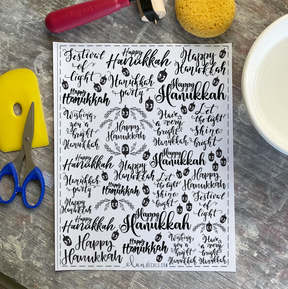 Festival
of
Light
Happy
Hanukkah
Happy
Hanukkah
Hanukkah
party
Happy
Hanukkah
Happy
Hanukkah
Wishing
you a
bright
Hanukkah
Happy
Hanukkah
Have
a very
bright
Hanukkah
Let
the light
Shine
bright
Happy
Hanukkah
Happy
Hanukkah
Happy
Hanukkah
Hanukkah
party
Happy
Hanukkah
Let
the light
Shine
Happy
Hanukkah
Happy
Hanukkah
Happy
Hanukkah
Happy
Hanukkah
Festival
of
Light
Happy
Hanukkah
Happy
Hanukkah
Happy
Hanukkah
Wishing
you a
bright
Hanukkah
Have
a very
bright
Hanukkah